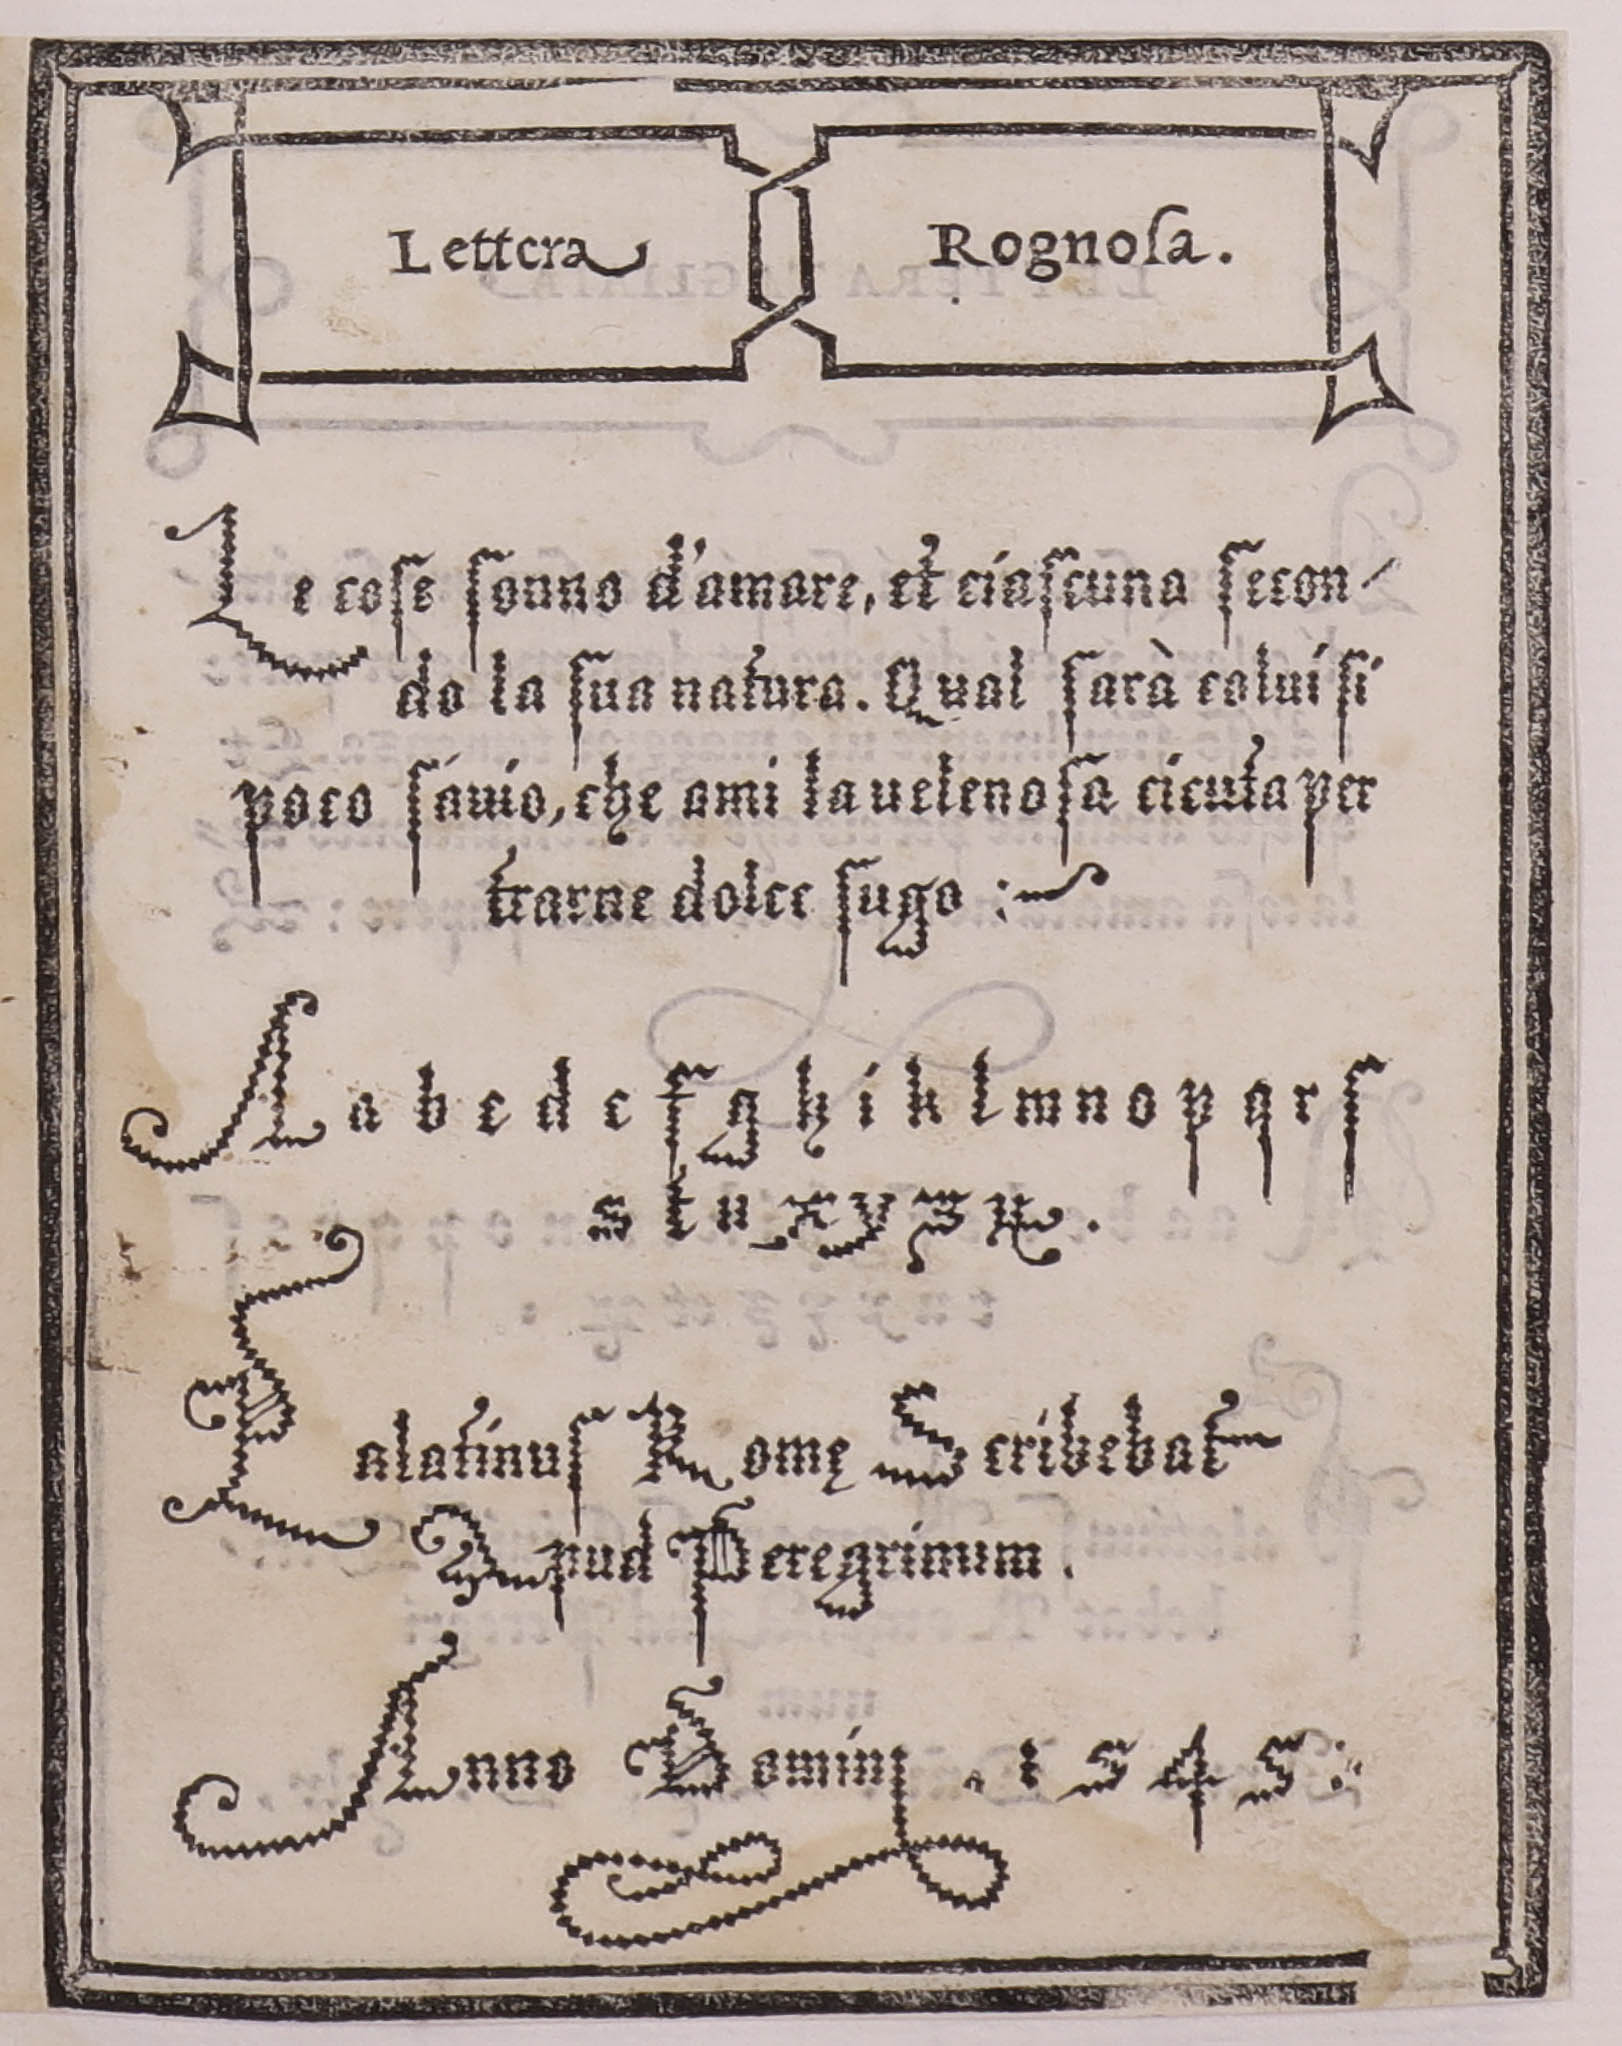 Lettera Rognoſa.
Le coſe ſonno d'amare, et ciaſcuna ſecon-
do la ſua natura. Qual ſarà colui ſi
poco ſauio, che ami la uelenoſa cicuta per
trarne dolce ſugo :~
A a b c d e f g h i k l m n o p q r ſ
s t u x y z &.
Palatinuſ Romę Scribebat
Apud Peregrinum.
Anno Domini . 1545 :